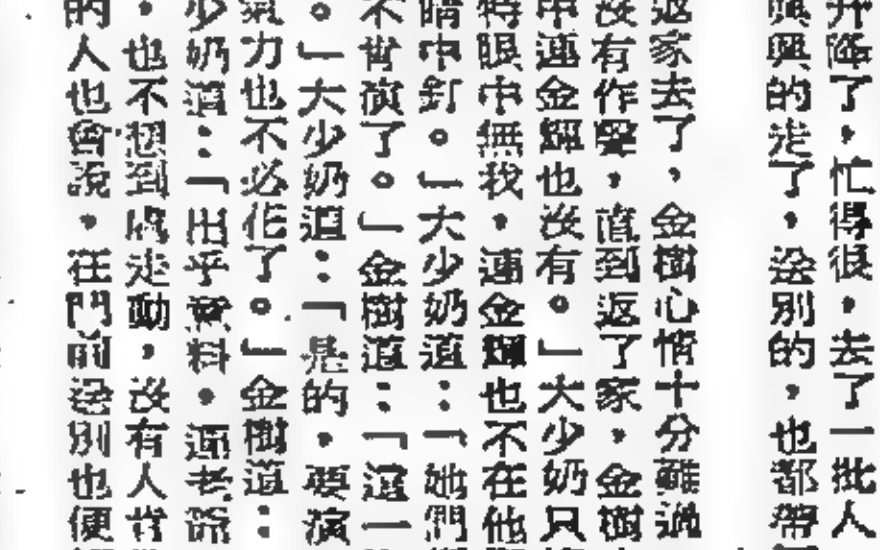 升降了，忙得很，去了一批人
興興的走了，送別的，也都帶
返家去了，金樹心情十分難過
沒有作聲，直到返了家，金樹
中連金輝也沒有。」大少奶只
特眼中無我，連金輝也不在他
暗中釘。」大少奶道：「她們
不曾演了。」金樹道：「這一
。」大少奶道：「是的，要演
氣力也不必花了。」金樹道：
少奶道：「出乎意料，連老爺
，也不想到處走動，沒有人肯
的人也會說，在門前送別也便